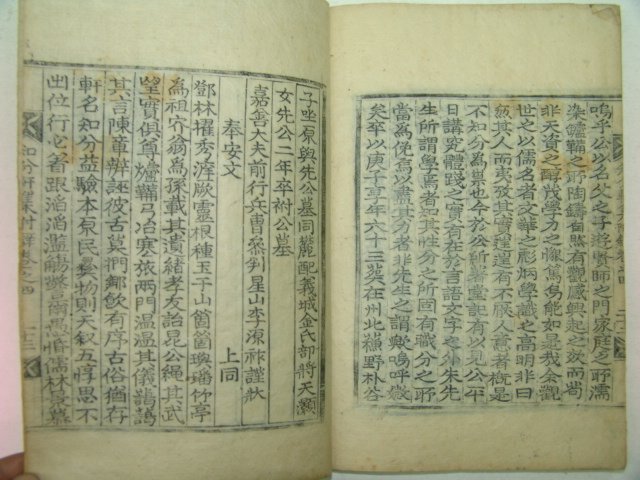 嗚乎公以名父之子遊賢師之門家庭之所濡
染鑪鞴之所陶鑄自然有觀感興起之效而苟
非天資之醇茂學力之慥篤焉能如是哉余觀
世之以儒名者文華之彪炳學識之高明非曰
其人而夷攷其實遑遑有不厭人意者槪是
不知分爲祟也今於公所著堂記有以見公平
日講究體踐之實有在於言語文字之外朱先
生所謂學焉者如其性分之所固有職分之所
當爲俛焉以盡其力者非先生之謂歟嗚呼
矣卒以庚子享年六十三葬在州北野朴谷
子坐原與先公墓同麓配義城金氏部將天灝
女先公二年卒祔公墓
嘉善大夫前行兵曹參判星山李源祚謹狀
奉安文 上同
鄧林擢秀厥靈根種玉于山箇箇璵璠竹亭
爲祖翁爲孫載其遺緖孝友詒昆公繩其武
望實俱尊爐鞴弓冶寒旅兩門溫溫其儀
其言陳董辨誣彼舌莫捫鄒飮有序古俗猶存
軒名知分益驗本原民彝物則天叙五惇思不
出位行必著跟滔滔濫觴爾焉惛儒林長慕
知分軒集附錄卷之四 十三